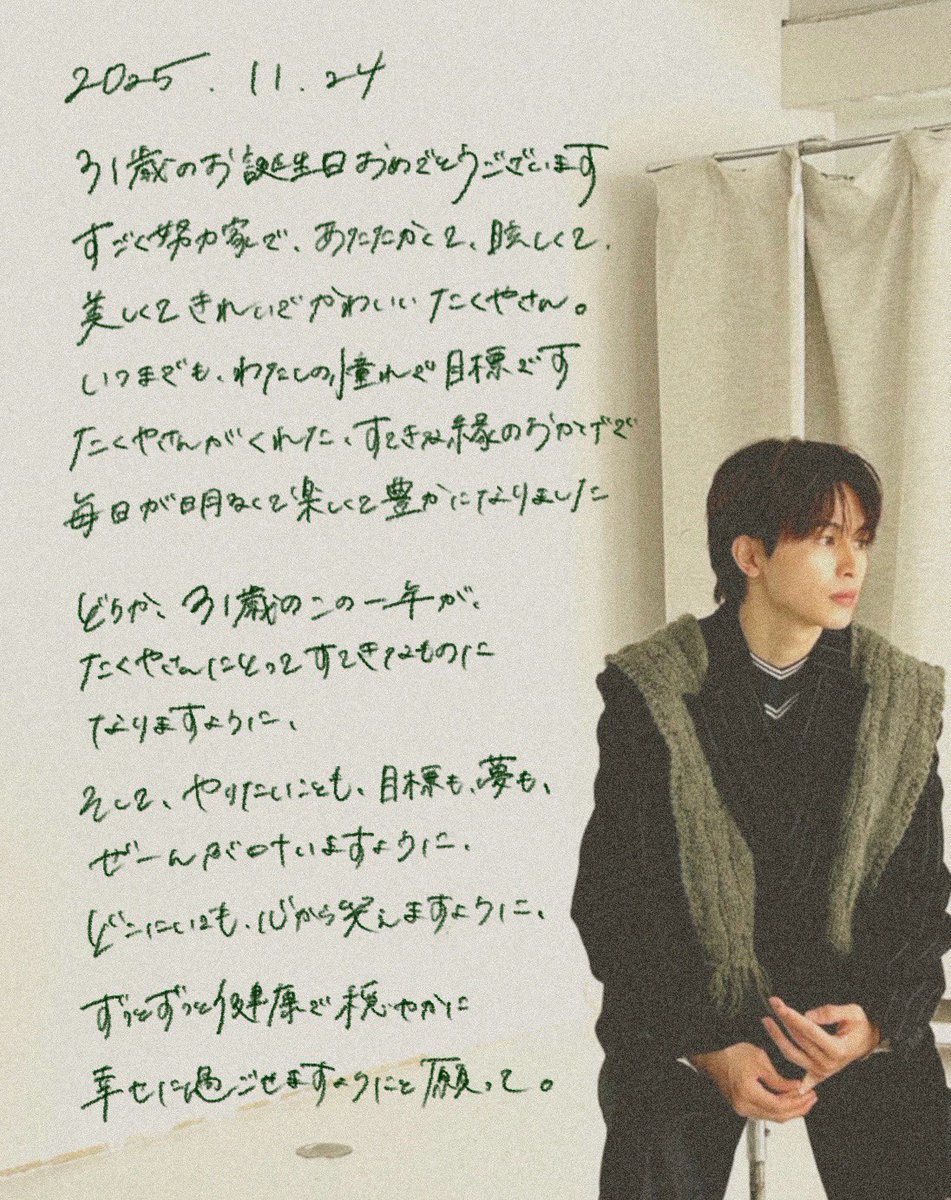 2025.11.24
31歳のお誕生日おめでとうございます
すごく努力家で、あたたかくて、眩しくて、
美しくてきれいでかわいい たくやさん。
いつまでも、わたしの憧れで目標です
たくやさんがくれた、すてきな縁のおかげで
毎日が明るくて楽しくて豊かになりました
どうか、31歳のこの一年が、
たくやさんにとってすてきなものに
なりますように、
そして、やりたいことも、目標も、夢も、
ぜーんぶ叶いますように、
どこにいても、心から笑えますように、
ずっとずっと健康で穏やかに
幸せに過ごせますようにと願って。